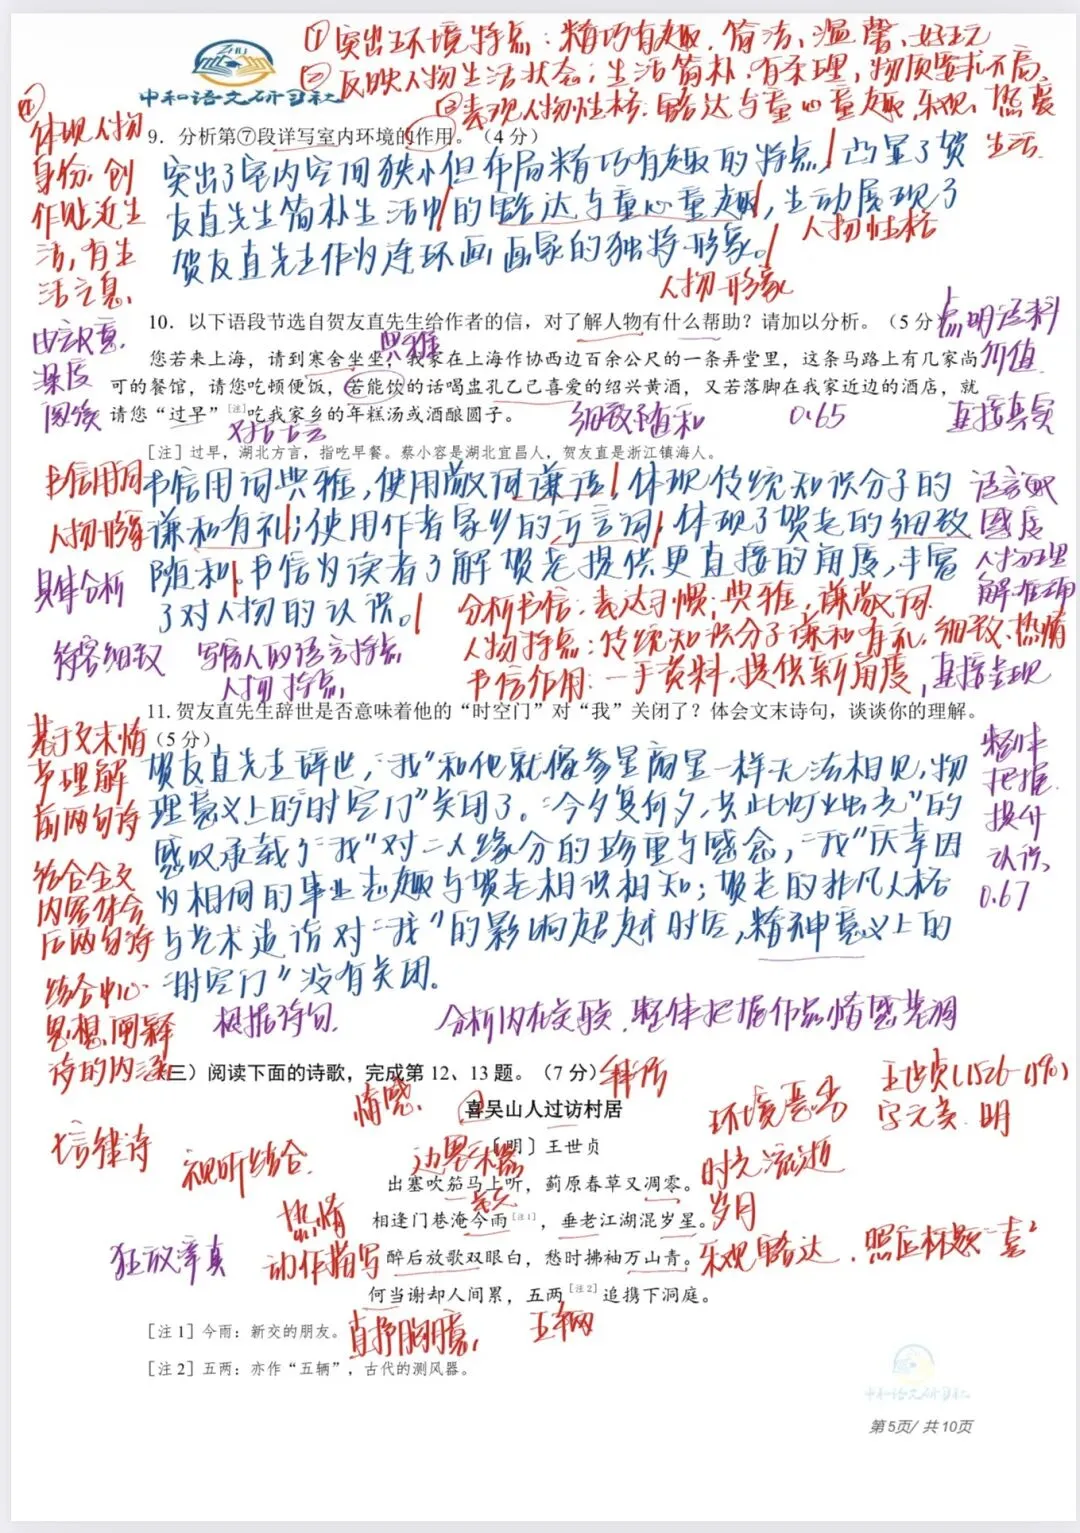 ①突出环境特点：精巧有趣、简洁、温馨、好玩
②反映人物生活状态：生活简朴、有条理，物质要求不高、
③表现人物性格：豁达与童心童趣，乐观、热爱
生活
④
体现人物
身份，创
作贴近生
活，有生
活之息、
中和语文研习社
9．分析第⑦段详写室内环境的作用。（4分）
突出了室内空间狭小但布局精巧有趣的特点，凸显了贺
友直先生简朴生活中的豁达与童心童趣，生动展现了
贺友直先生作为连环画画家的独特形象。
人物性格
人物形象
10．以下语段节选自贺友直先生给作者的信，对了解人物有什么帮助？请加以分析。（5分）
典雅
点明资料
价值
深度
阅读
您若来上海，请到寒舍坐坐，我家在上海作协西边百余公尺的一条弄堂里，这条马路上有几家尚
可的餐馆，请您吃顿便饭，若能饮的话喝盅孔乙己喜爱的绍兴黄酒，又若落脚在我家近边的酒店，就
请您“过早”[注]吃我家乡的年糕汤或酒酿圆子。
细致随和
0.65
直接真实
[注] 过早，湖北方言，指吃早餐。蔡小容是湖北宜昌人，贺友直是浙江镇海人。
书信用词
人物形象
具体分析
书信用词典雅，使用敬词谦语，体现传统知识分子的
谦和有礼；使用作者家乡的方言词，体现了贺老的细致
随和。书信为读者了解贺老提供更直接的角度，丰富
了对人物的认识。
人物理
解准确
分析书信：表达习惯：典雅，谦敬词
人物特点：传统知识分子谦和有礼，细致、热情
书信作用：一手资料，提供新角度，直接呈现
待客细致
写信人的语言特点
人物特点
11．贺友直先生辞世是否意味着他的“时空门”对“我”关闭了？体会文末诗句，谈谈你的理解。
（5分）
基于文末情
节理解
前两句诗
结合全文
内容体会
后两句诗
结合中心
思想，阐释
诗的内涵
贺友直先生辞世，“我”和他就像参星商星一样无法相见，物
理意义上的“时空门”关闭了。“今夕复何夕，共此灯烛光”的
感叹承载了“我”对二人缘分的珍重与感念，“我”庆幸因
为相同的事业志趣与贺老相识相知；贺老的非凡人格
与艺术造诣对“我”的影响超越时空，精神意义上的
“时空门”没有关闭。
整体
把握
提升
认识
0.67
根据诗句
分析内在关联，整体把握作品情感基调
（三）阅读下面的诗歌，完成第12、13题。（7分）
拜访
情感
喜吴山人过访村居
[明] 王世贞
王世贞(1526-1590)
字元美 明
环境恶劣
七言律诗
视听结合
边塞乐器
出塞吹笳马上听，蓟原春草又凋零。
时光流逝
相逢门巷淹今雨[注1]，垂老江湖混岁星。
岁月
热情
狂放率真
动作描写
醉后放歌双眼白，愁时拂袖万山青。
乐观豁达，照应标题“喜”
何当谢却人间累，五两[注2]追携下洞庭。
[注1] 今雨：新交的朋友。
直抒胸臆
五辆
[注2] 五两：亦作“五辆”，古代的测风器。
中和语文研习社
第5页/ 共10页